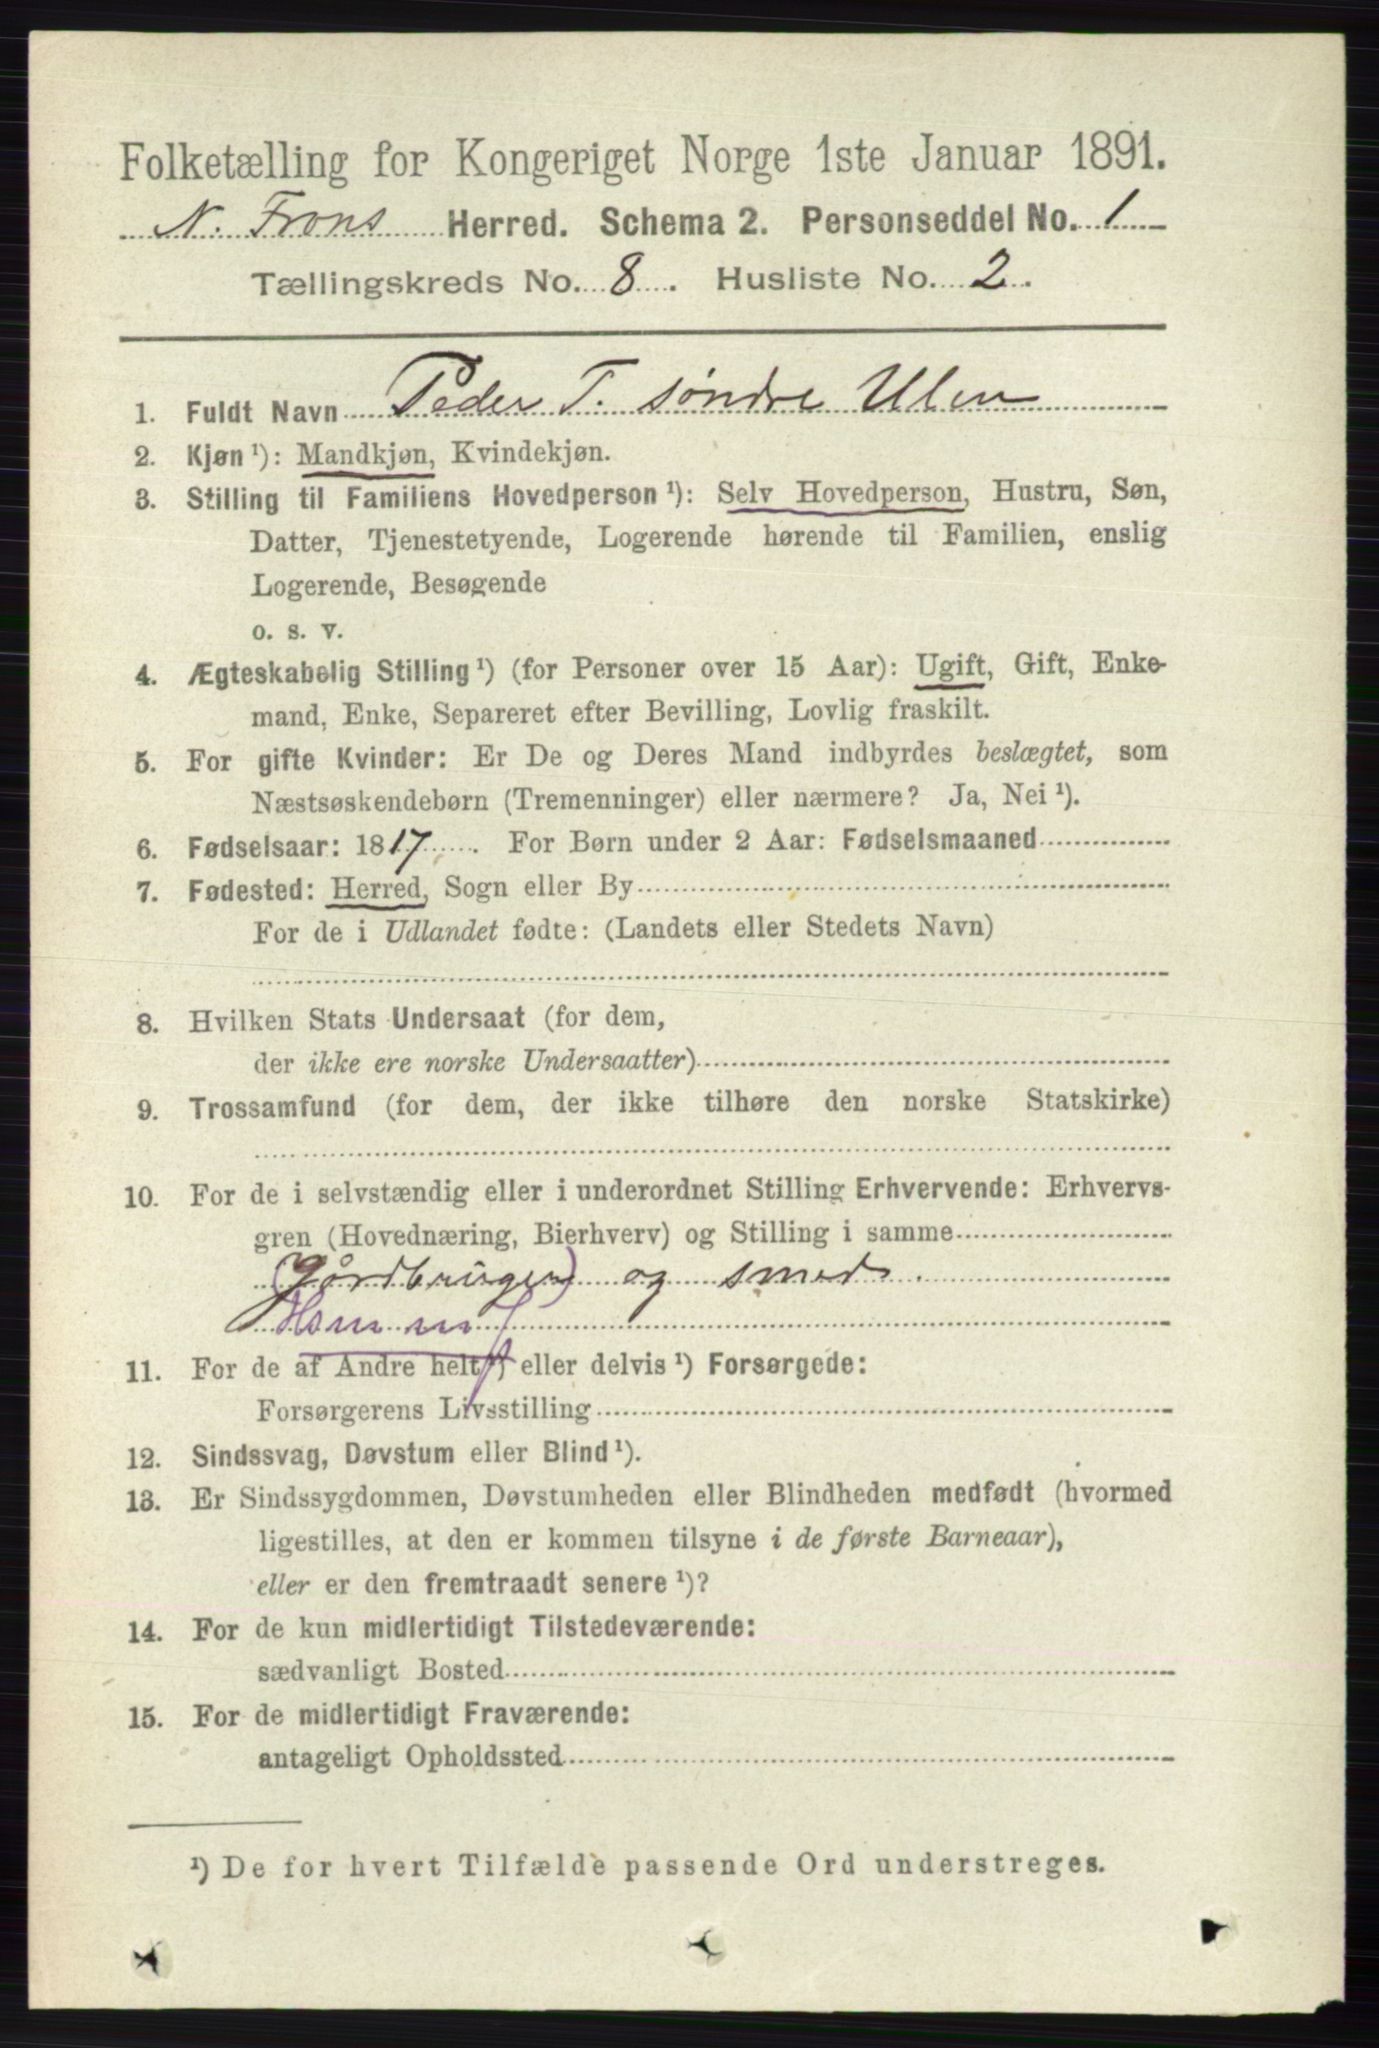 Folketælling for Kongeriget Norge 1ste Januar 1891.
N. Frons Herred. Schema 2. Personseddel No. 1
Tællingskreds No. 8. Husliste No. 2.
1. Fuldt Navn Peder T. søndre Ulen
2. Kjøn ¹): Mandkjøn, Kvindekjøn.
3. Stilling til Familiens Hovedperson ¹): Selv Hovedperson, Hustru, Søn,
Datter, Tjenestetyende, Logerende hørende til Familien, enslig
Logerende, Besøgende
o. s. v.
4. Ægteskabelig Stilling ¹) (for Personer over 15 Aar): Ugift, Gift, Enke-
mand, Enke, Separeret efter Bevilling, Lovlig fraskilt.
5. For gifte Kvinder: Er De og Deres Mand indbyrdes beslægtet, som
Næstsøskendebørn (Tremenninger) eller nærmere? Ja, Nei ¹).
6. Fødselsaar: 1817. For Børn under 2 Aar: Fødselsmaaned
7. Fødested: Herred, Sogn eller By
For de i Udlandet fødte: (Landets eller Stedets Navn)
8. Hvilken Stats Undersaat (for dem,
der ikke ere norske Undersaatter)
9. Trossamfund (for dem, der ikke tilhøre den norske Statskirke)
10. For de i selvstændig eller i underordnet Stilling Erhvervende: Erhvervs-
gren (Hovednæring, Bierhverv) og Stilling i samme
(Gårdbruger) og smed.
11. For de af Andre helt ¹) eller delvis ¹) Forsørgede:
Forsørgerens Livsstilling
12. Sindssvag, Døvstum eller Blind ¹).
13. Er Sindssygdommen, Døvstumheden eller Blindheden medfødt (hvormed
ligestilles, at den er kommen tilsyne i de første Barneaar),
eller er den fremtraadt senere ¹)?
14. For de kun midlertidigt Tilstedeværende:
sædvanligt Bosted
15. For de midlertidigt Fraværende:
antageligt Opholdssted
¹) De for hvert Tilfælde passende Ord understreges.